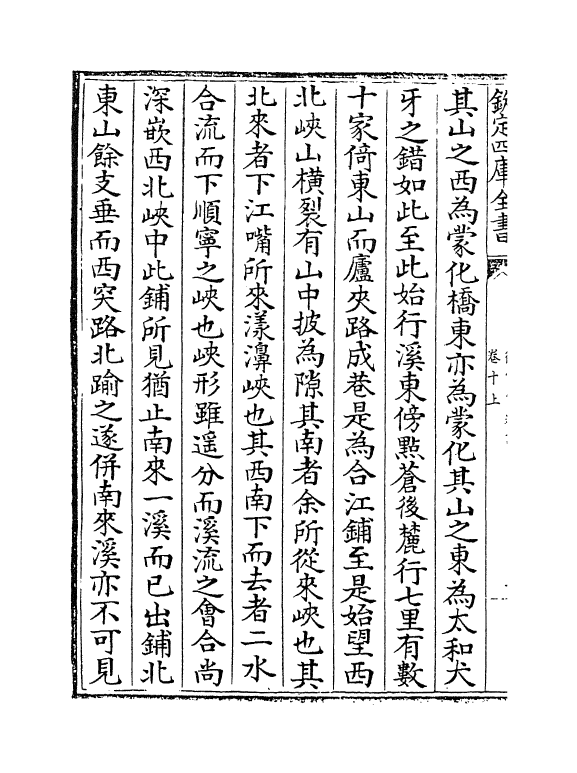 欽定四庫全書
卷十上
其山之西為蒙化橋東亦為蒙化其山之東為太和犬
牙之錯如此至此始行溪東傍㸃蒼後麓行七里有數
十家倚東山而廬夾路成巷是為合江鋪至是始望西
北峽山橫裂有山中披為隙其南者余所從來峽也其
北來者下江嘴所來漾濞峽也其西南下而去者二水
合流而下順寧之峽也峽形雖遥分而溪流之會合尚
深嵌西北峽中此鋪所見猶止南來一溪而已出鋪北
東山餘支垂而西突路北踰之遂併南來溪亦不可見